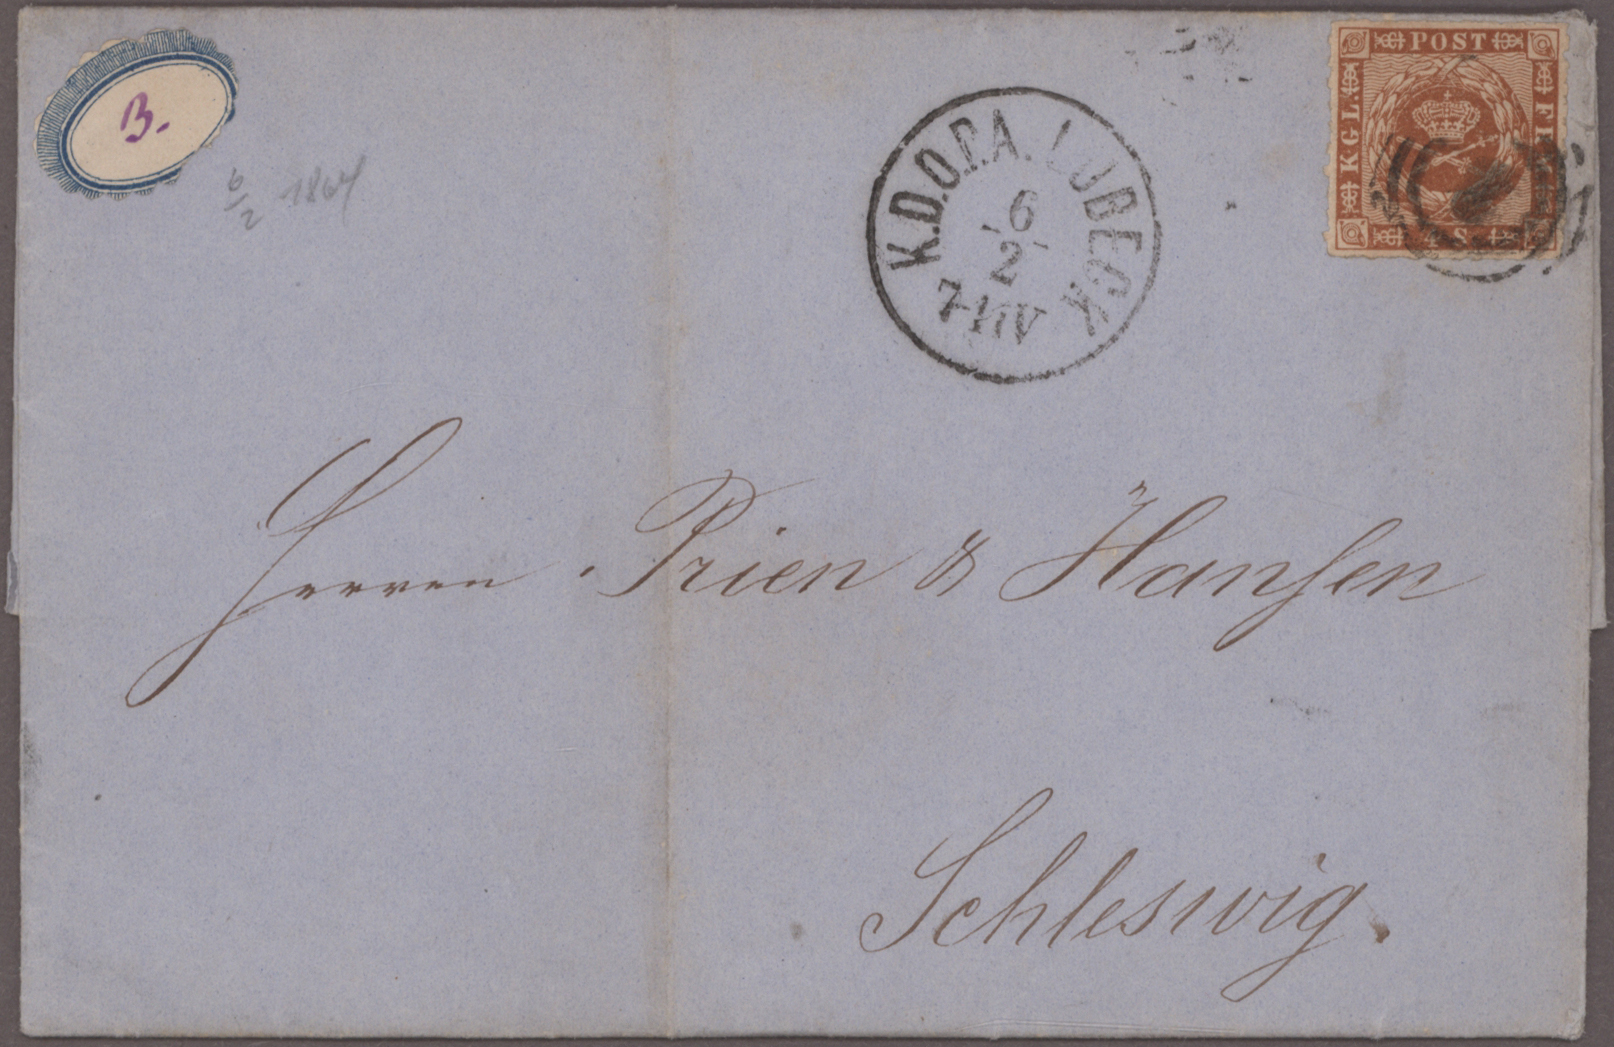 B.
6/2 1864
K.D.O.P.A. LÜBECK
6
2
POST
KGL.
4 S
Herren Prien & Hansen
Schleswig.